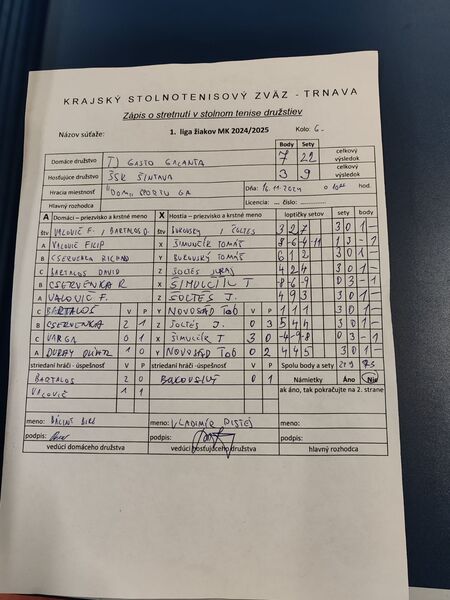 KRAJSKÝ STOLNOTENISOVÝ ZVÄZ - TRNAVA
Zápis o stretnutí v stolnom tenise družstiev
Názov súťaže: 1. liga žiakov MK 2024/2025 Kolo: 6.
Body Sety
Domáce družstvo TJ GASTO GALANTA 7 22 celkový výsledok
Hosťujúce družstvo ŠSK ŠINTAVA 3 9 celkový výsledok
Hracia miestnosť "DOM ŠPORTU GA Dňa: 16.11.2024 o hod.
Hlavný rozhodca Licencia: ... číslo:
A Domáci – priezvisko a krstné meno X Hostia – priezvisko a krstné meno loptičky setov sety body
štv VALOVIČ F. / BARTALOS D. štv BUKOVSKÝ / ŠOLTES 3 2 7 3 0 1 –
A VALOVIČ FILIP X ŠIMUNČÍK TOMÁŠ -8 -6 4 -11 1 3 – 1
B CSERVENKA RICHARD Y BUKOVSKÝ TOMÁŠ 6 1 2 3 0 1 –
C BARTALOS DAVID Z ŠOLTÉS JURAJ 4 2 4 3 0 1 –
B CSERVENKA R X ŠIMUNČÍK T -8 -6 -9 0 3 – 1
A VALOVIČ F. Z ŠOLTÉS J. 4 9 3 3 0 1 –
C BARTALOS V P Y NOVOSAD TOB V P 3 0 1 –
B CSERVENKA 2 1 Z ŠOLTÉS J. 0 3 5 4 4 3 0 1 –
C VARGA 0 1 X ŠIMUNČÍK T 3 0 -4 -9 -8 0 3 – 1
A DURAY OLIVER 1 0 Y NOVOSAD TOB 0 2 4 4 5 3 0 1 –
striedaní hráči - úspešnosť V P striedaní hráči - úspešnosť V P Spolu body a sety 22 9 7 3
BARTALOS 2 0 BUKOVSKÝ 0 1 Námietky Áno Nie
VALOVIČ 1 1 ak áno, tak pokračujte na 2. strane
meno: meno: VLADIMÍR meno:
podpis: podpis: podpis:
vedúci domáceho družstva vedúci hosťujúceho družstva hlavný rozhodca